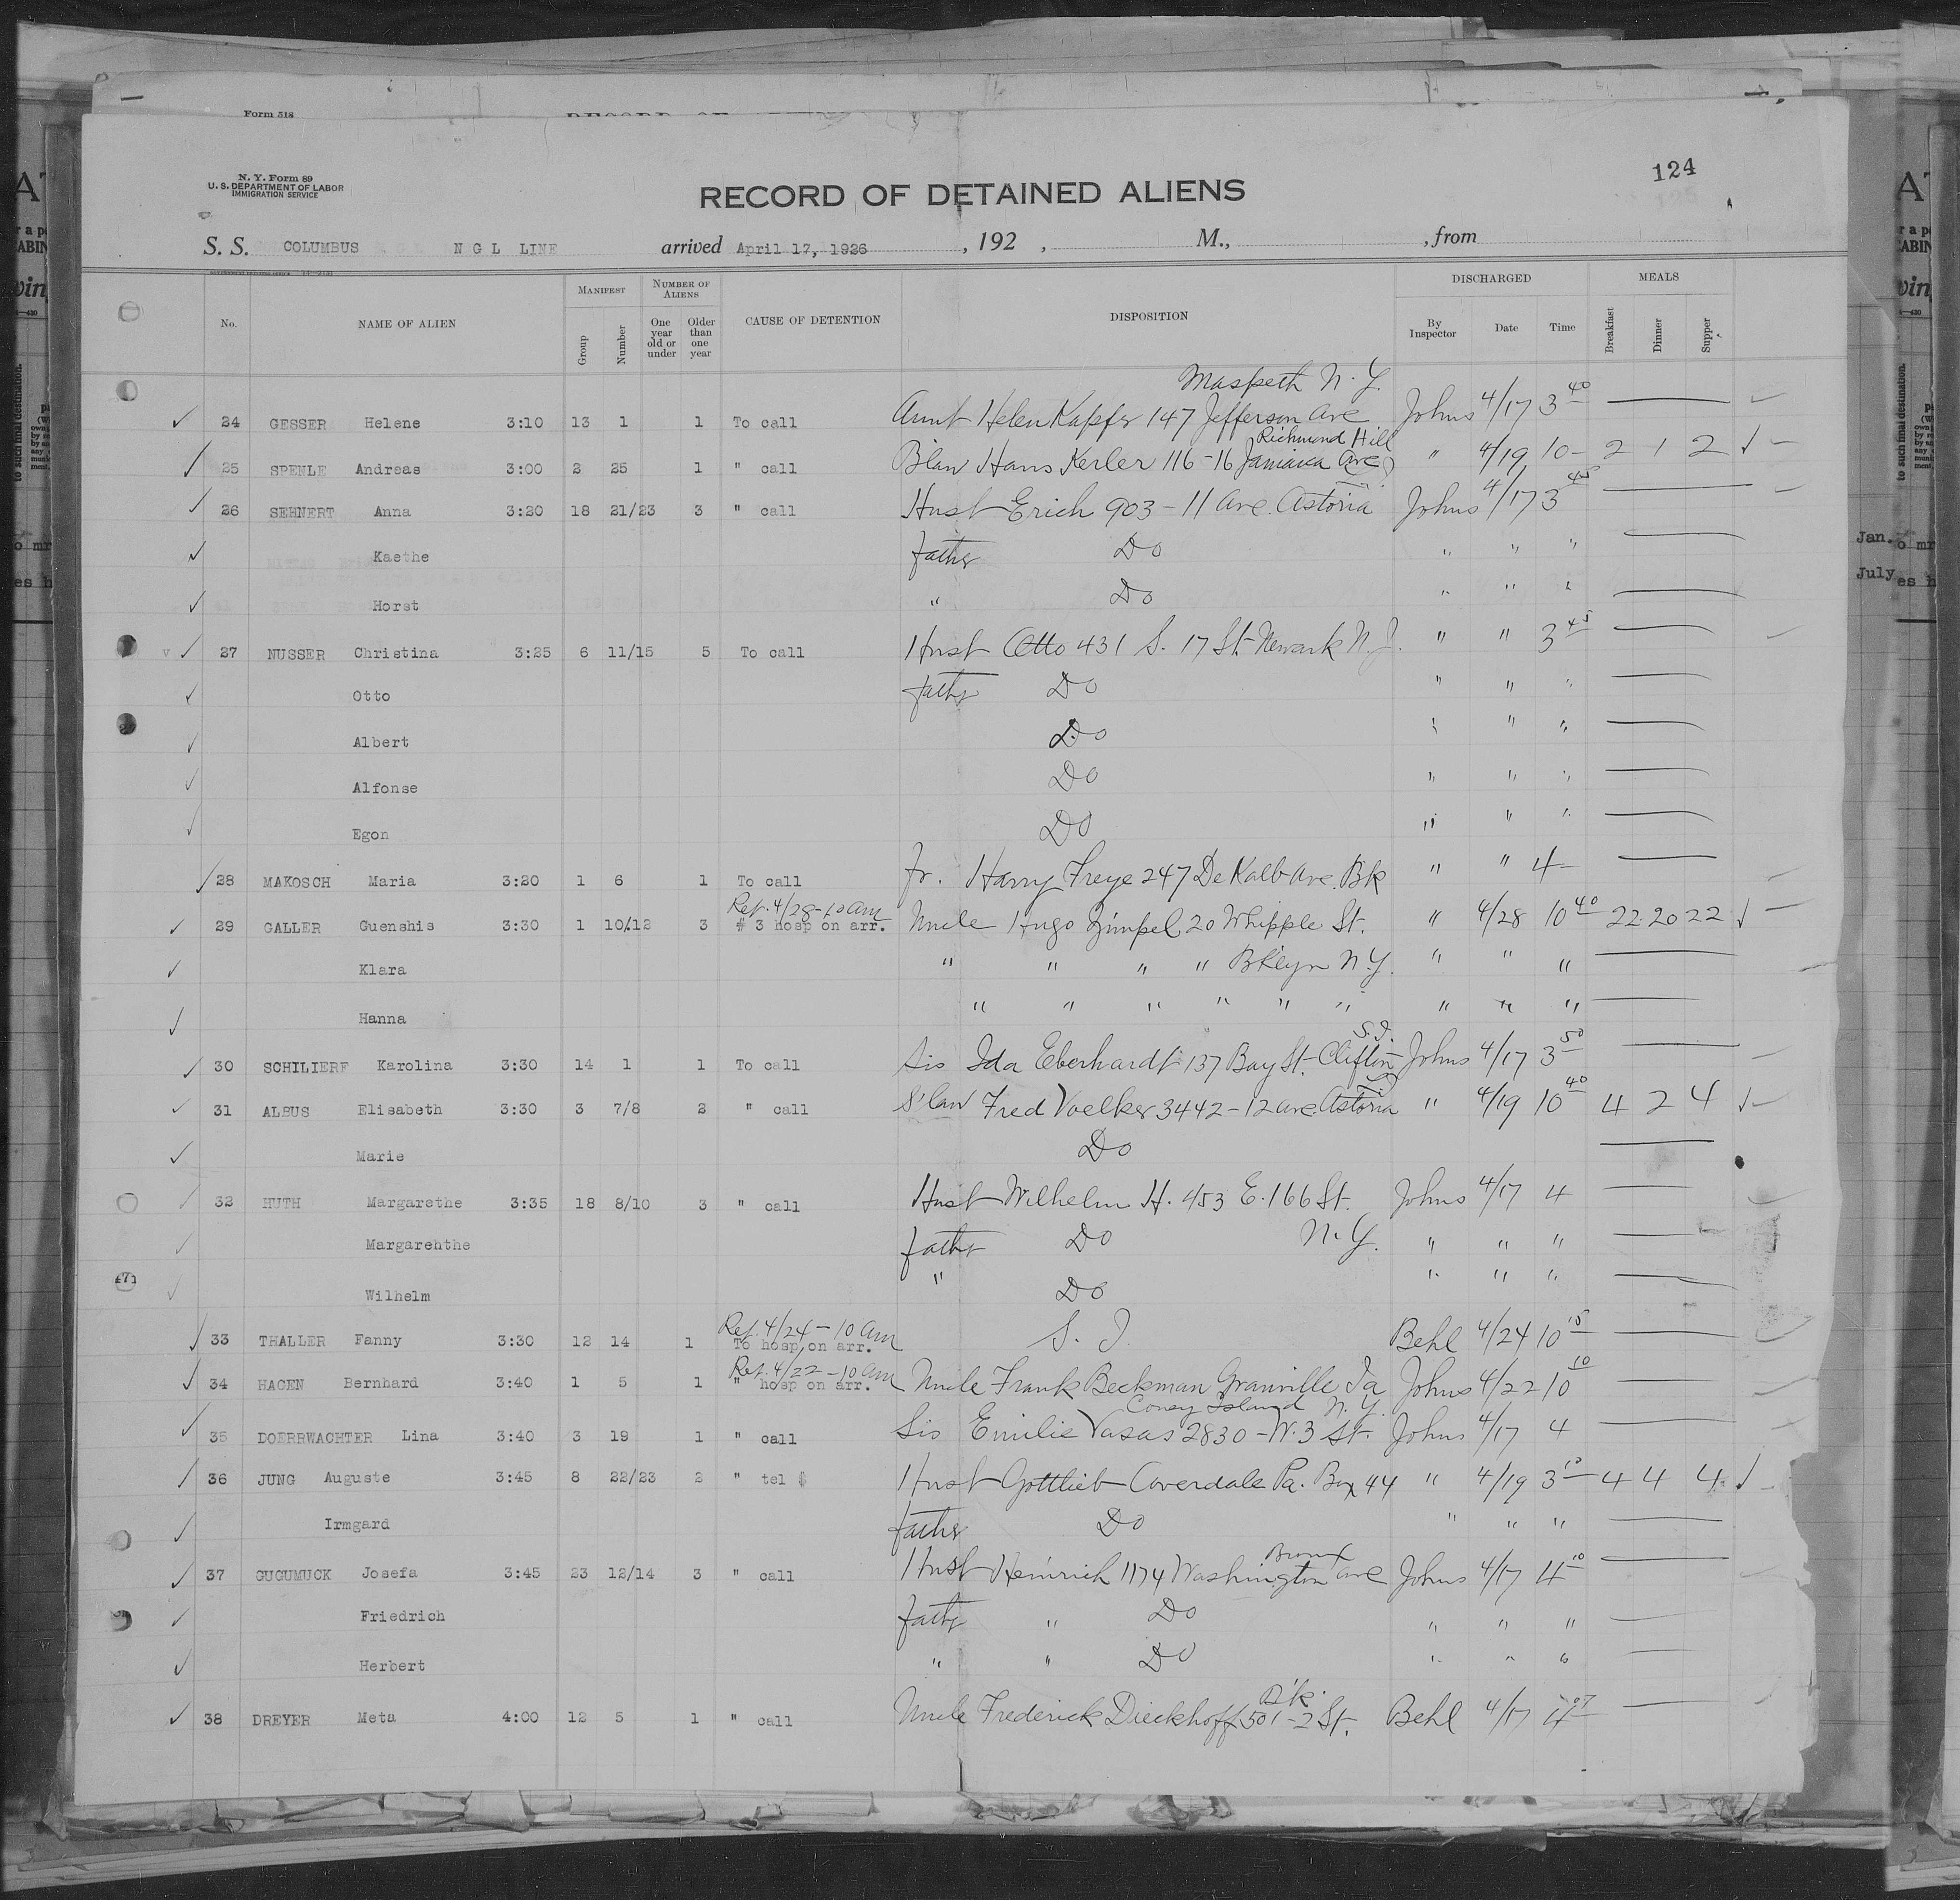 Form 518
N. Y. Form 89
U. S. DEPARTMENT OF LABOR
IMMIGRATION SERVICE
124
RECORD OF DETAINED ALIENS
S. S. COLUMBUS N G L LINE arrived April 17, 1926, 192 , M., , from
No. NAME OF ALIEN MANIFEST Group Number NUMBER OF ALIENS One year old or under Older than one year CAUSE OF DETENTION DISPOSITION DISCHARGED By Inspector Date Time MEALS Breakfast Dinner Supper
Maspeth N.Y.
24 GESSER Helene 3:10 13 1 1 To call Aunt Helen Kapfer 147 Jefferson Ave Johns 4/17 3 40
Richmond Hill
25 SPENLE Andreas 3:00 2 25 1 " call Blaw Hans Kerler 116-16 Jamaica Ave " 4/19 10- 2 1 2
26 SEHNERT Anna 3:20 18 21/23 3 " call Husb Erich 903-11 Ave. Astoria Johns 4/17 3 45
Kaethe father Do " " "
Horst " Do " " "
27 NUSSER Christina 3:25 6 11/15 5 To call Husb Otto 431 S. 17 St. Newark N.J. " " 3 45
Otto father Do " " "
Albert Do " " "
Alfonse Do " " "
Egon Do " " "
28 MAKOSCH Maria 3:20 1 6 1 To call Fr. Harry Freye 247 DeKalb Ave. Bk " " 4-
Ret. 4/28-10 am
29 GALLER Guenshis 3:30 1 10/12 3 # 3 hosp on arr. Uncle Hugo Zimpel 20 Whipple St. " 4/28 10 40 22 20 22
Klara " " " " Bklyn N.Y. " " "
Hanna " " " " " " " " "
S.I.
30 SCHILIERF Karolina 3:30 14 1 1 To call Sis Ida Eberhardt 137 Bay St. Clifton Johns 4/17 3 50
31 ALBUS Elisabeth 3:30 3 7/8 2 " call S'law Fred Voelker 3442-12 Ave. Astoria " 4/19 10 40 4 2 4
Marie Do
32 HUTH Margarethe 3:35 18 8/10 3 " call Husb Wilhelm H. 453 E. 166 St. Johns 4/17 4
Margarehthe father Do N.Y. " " "
Wilhelm " Do " " "
Ret. 4/24-10 am
33 THALLER Fanny 3:30 12 14 1 To hosp on arr. S. I. Behl 4/24 10 15
Ret. 4/22-10 am
34 HAGEN Bernhard 3:40 1 5 1 " hosp on arr. Uncle Frank Beckman Granville Ia Johns 4/22 10 10
Coney Island N.Y.
35 DOERRWACHTER Lina 3:40 3 19 1 " call Sis Emilie Vasas 2830-W. 3 St. Johns 4/17 4
36 JUNG Auguste 3:45 8 22/23 2 " tel $ Husb Gottlieb Coverdale Pa. Box 44 " 4/19 3 10 4 4 4
Irmgard father Do " " "
Bronx
37 GUGUMUCK Josefa 3:45 23 12/14 3 " call Husb Heinrich 1174 Washington Ave Johns 4/17 4 10
Friedrich father " Do " " "
Herbert " " Do " " "
B'k.
38 DREYER Meta 4:00 12 5 1 " call Uncle Frederick Dieckhoff 501-2 St. Behl 4/17 4 07
Jan.
July